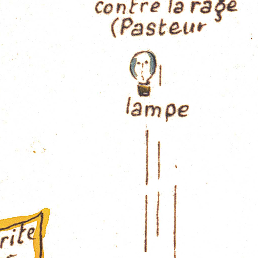 contre la rage
(Pasteur
lampe
rite